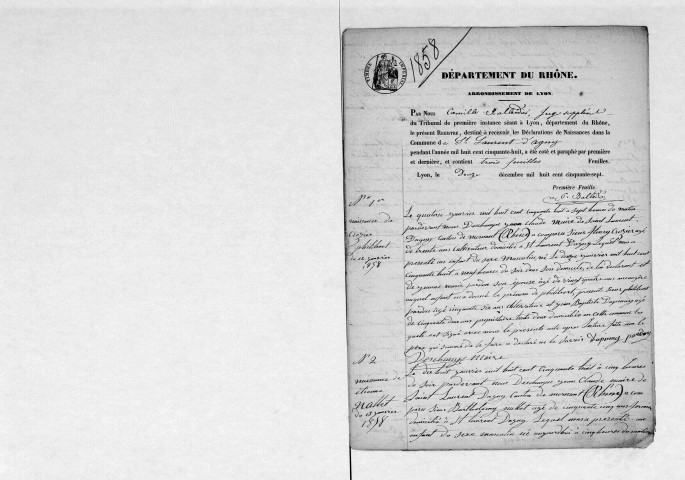 1858
DÉPARTEMENT DU RHÔNE.
ARRONDISSEMENT DE LYON.
PAR NOUS Camille Juge suppléant
du Tribunal de première instance séant à Lyon, département du Rhône,
le présent REGISTRE, destiné à recevoir les Déclarations de Naissances dans la
Commune de St Laurent d'agny
pendant l'année mil huit cent cinquante-huit, a été coté et paraphé par première
et dernière, et contient trois feuilles Feuilles.
Lyon, le Douze décembre mil huit cent cinquante-sept.
Première Feuille.
No 1er
naissance de
Crozier
philibert
du 12 janvier
1858
Le quatorze janvier mil huit cent cinquante huit à sept heures du matin
pardevant nous Deschamps jean Claude Maire de Saint Laurent
Dagny Canton de mornant (Rhône) a comparu sieur Crozier agé
de trente ans cultivateur domicilié à St Laurent Dagny Lequel nous a
présenté un enfant du sexe Masculin, né Le douze janvier mil huit cent
cinquante huit à neuf heures du soir dans son domicile, de lui déclarant et
de son épouse agée de vingt quatre ans
auquel enfant il a donné le prénom de philibert, présents sieurs philibert
agé cinquante six ans cultivateur et jean Baptiste Dupuy agé
de cinquante deux ans propriétaire tous deux domiciliés en cette commune les
quels ont signé avec nous le présent acte après Lecture faite non le
père qui sommé de le faire a déclaré ne le savoir
Deschamps maire
No 2
naissance de
étienne
nallet
du 18 janvier
1858
Le dix huit janvier mil huit cent cinquante huit à cinq heures
du soir pardevant nous Deschamps jean Claude maire de
Saint Laurent Dagny Canton de mornant (Rhône) a com
paru sieur Barthelemy nallet agé de cinquante cinq ans
domicilié à St Laurent Dagny Lequel nous a présenté un
enfant du sexe masculin né aujourdhui à cinq heures du matin